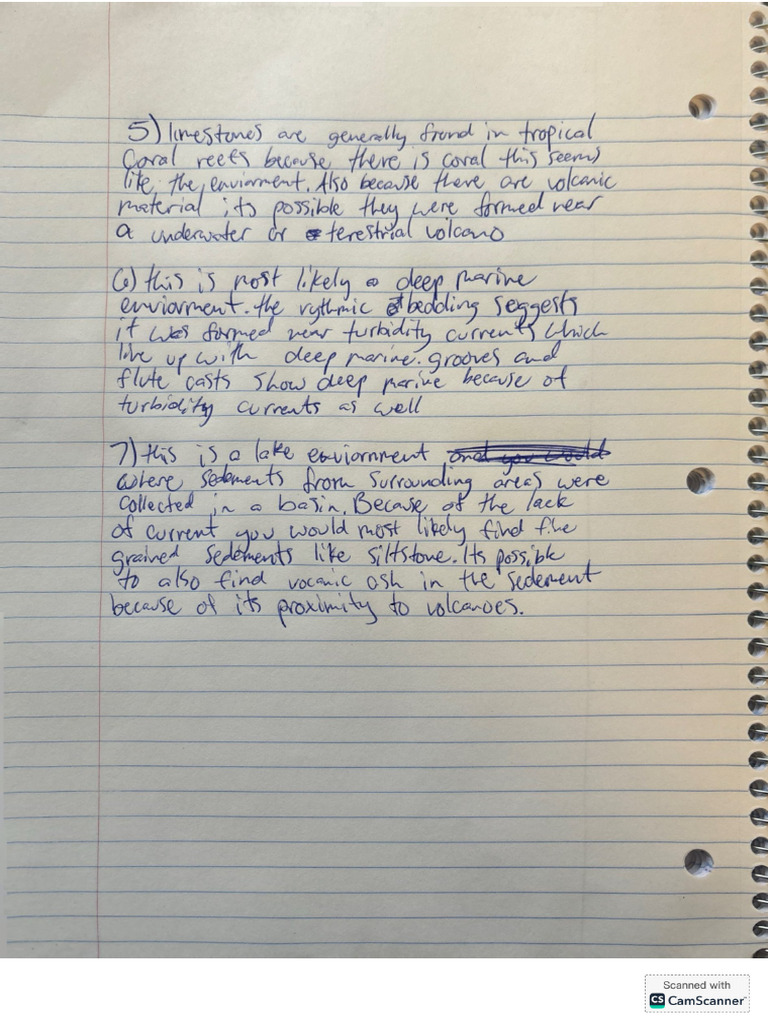 5) limestones are generally found in tropical
Coral reefs because there is coral this seems
like the enviarment. Also because there are volcanic
material its possible they were formed near
a underwater or terestrial volcano
6) this is most likely a deep marine
enviorment. the rythmic bedding seggests
it was formed near turbidity currents which
line up with deep marine. grooves and
flute casts show deep marine because of
turbidity currents as well
7) this is a lake enviornment and you would
where sedements from surrounding areas were
collected in a basin. Because of the lack
of current you would most likely find fine
grained sedements like siltstone. Its possible
to also find vocanic ash in the sedement
because of its proximity to volcanoes.
Scanned with
CS CamScanner